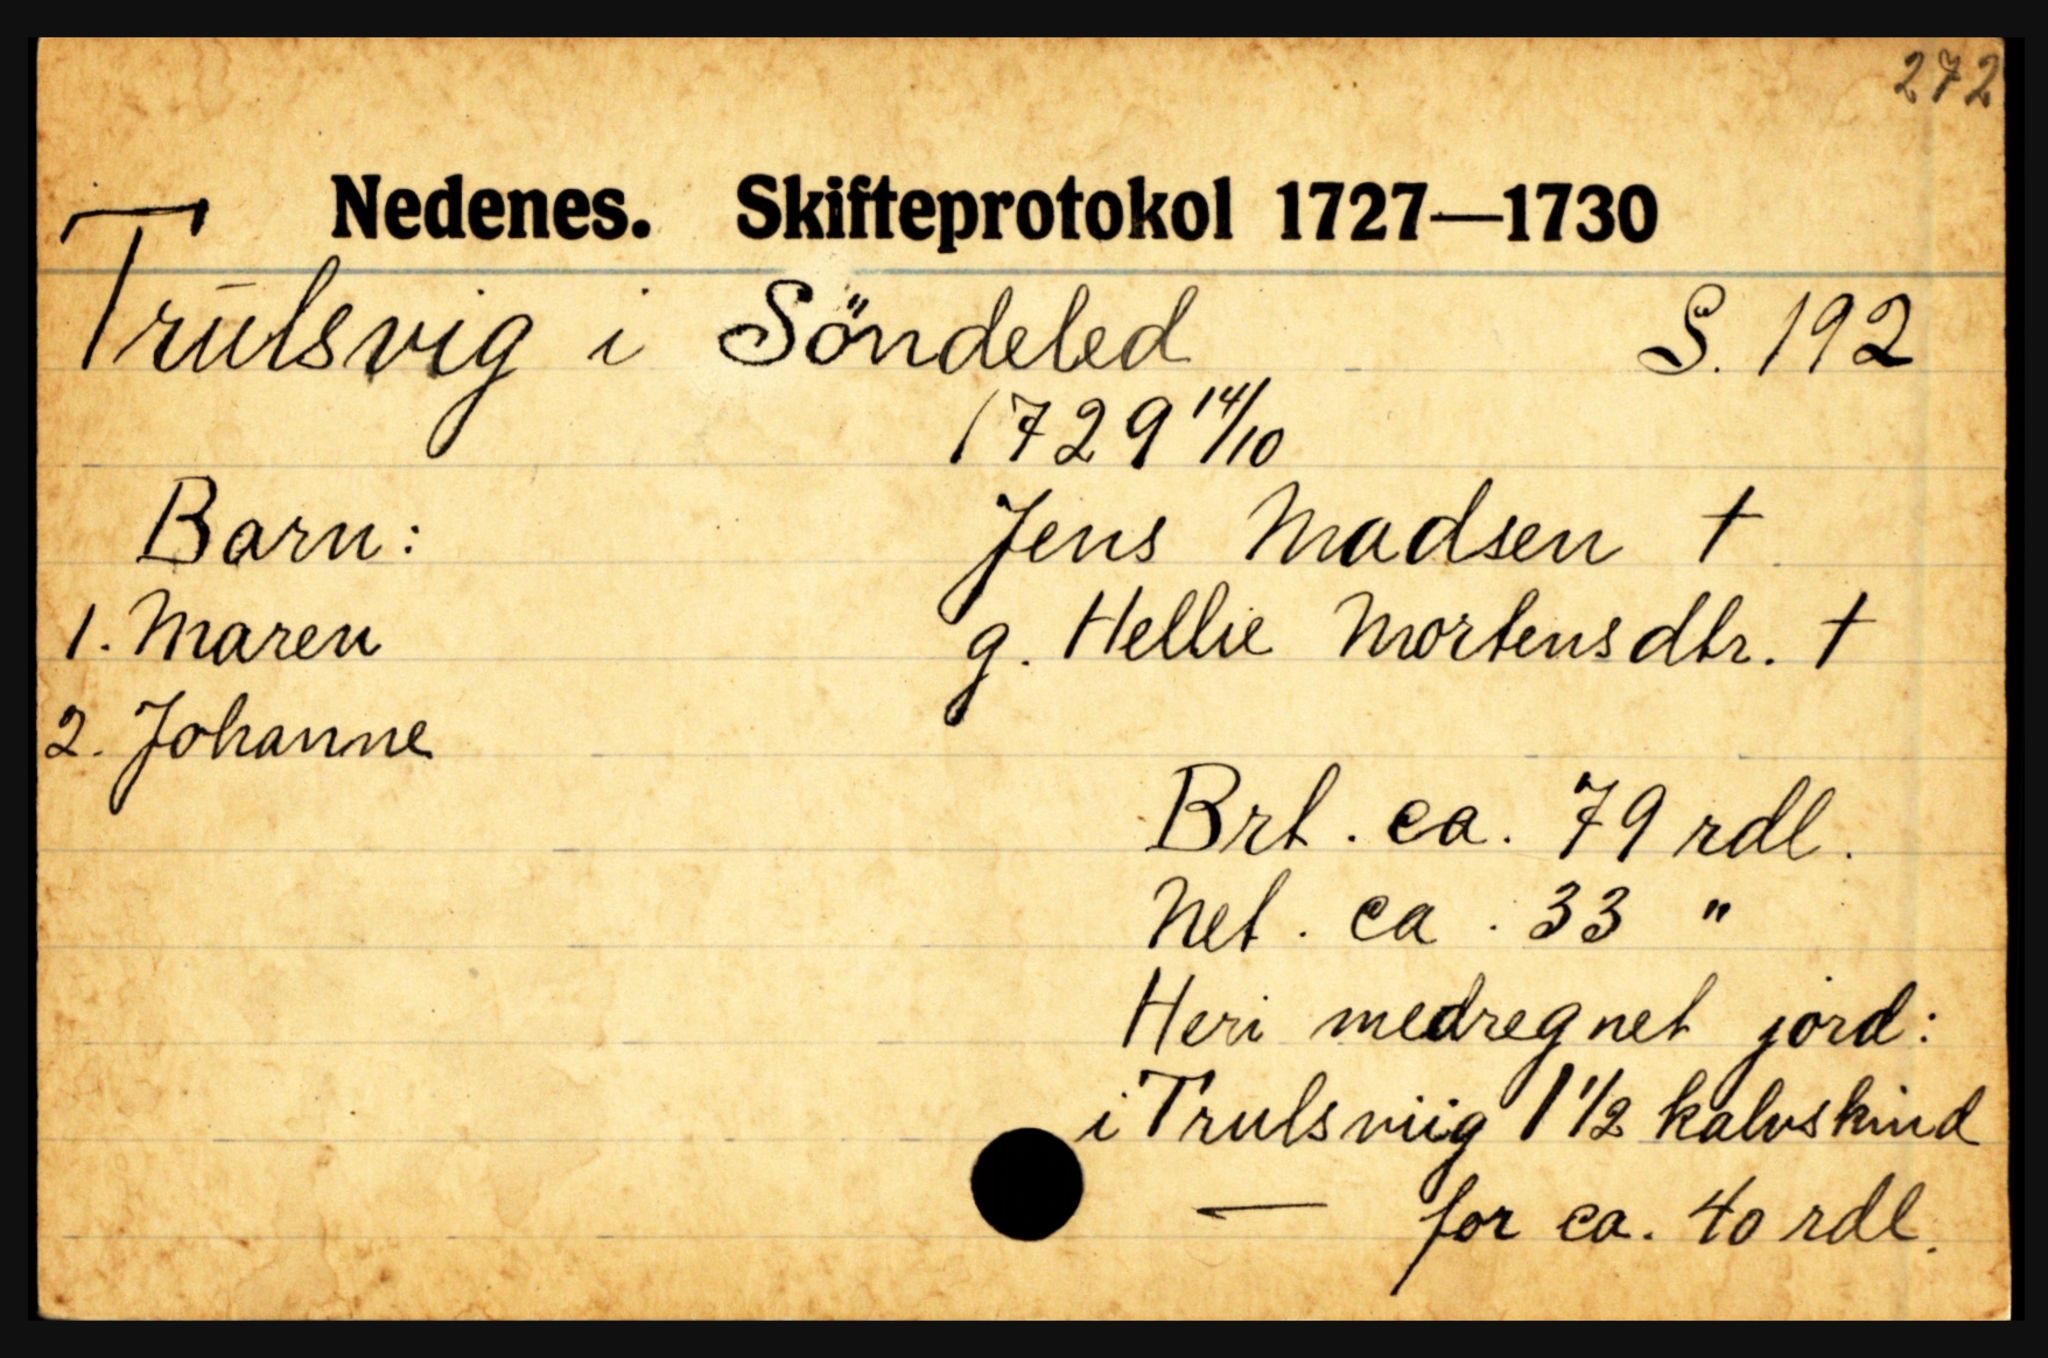 272
Nedenes. Skifteprotokol 1727—1730
Trulsvig i Söndeled S. 192
1729 14/10
Barn: Jens Madsen †
1. Maren g. Hellie Mortensdtr. †
2. Johanne
Brt. ca. 79 rdl.
Net. ca. 33 "
Heri medregnet jord:
i Trulsviig 1 1/2 kalvskind
— for ca. 40 rdl.